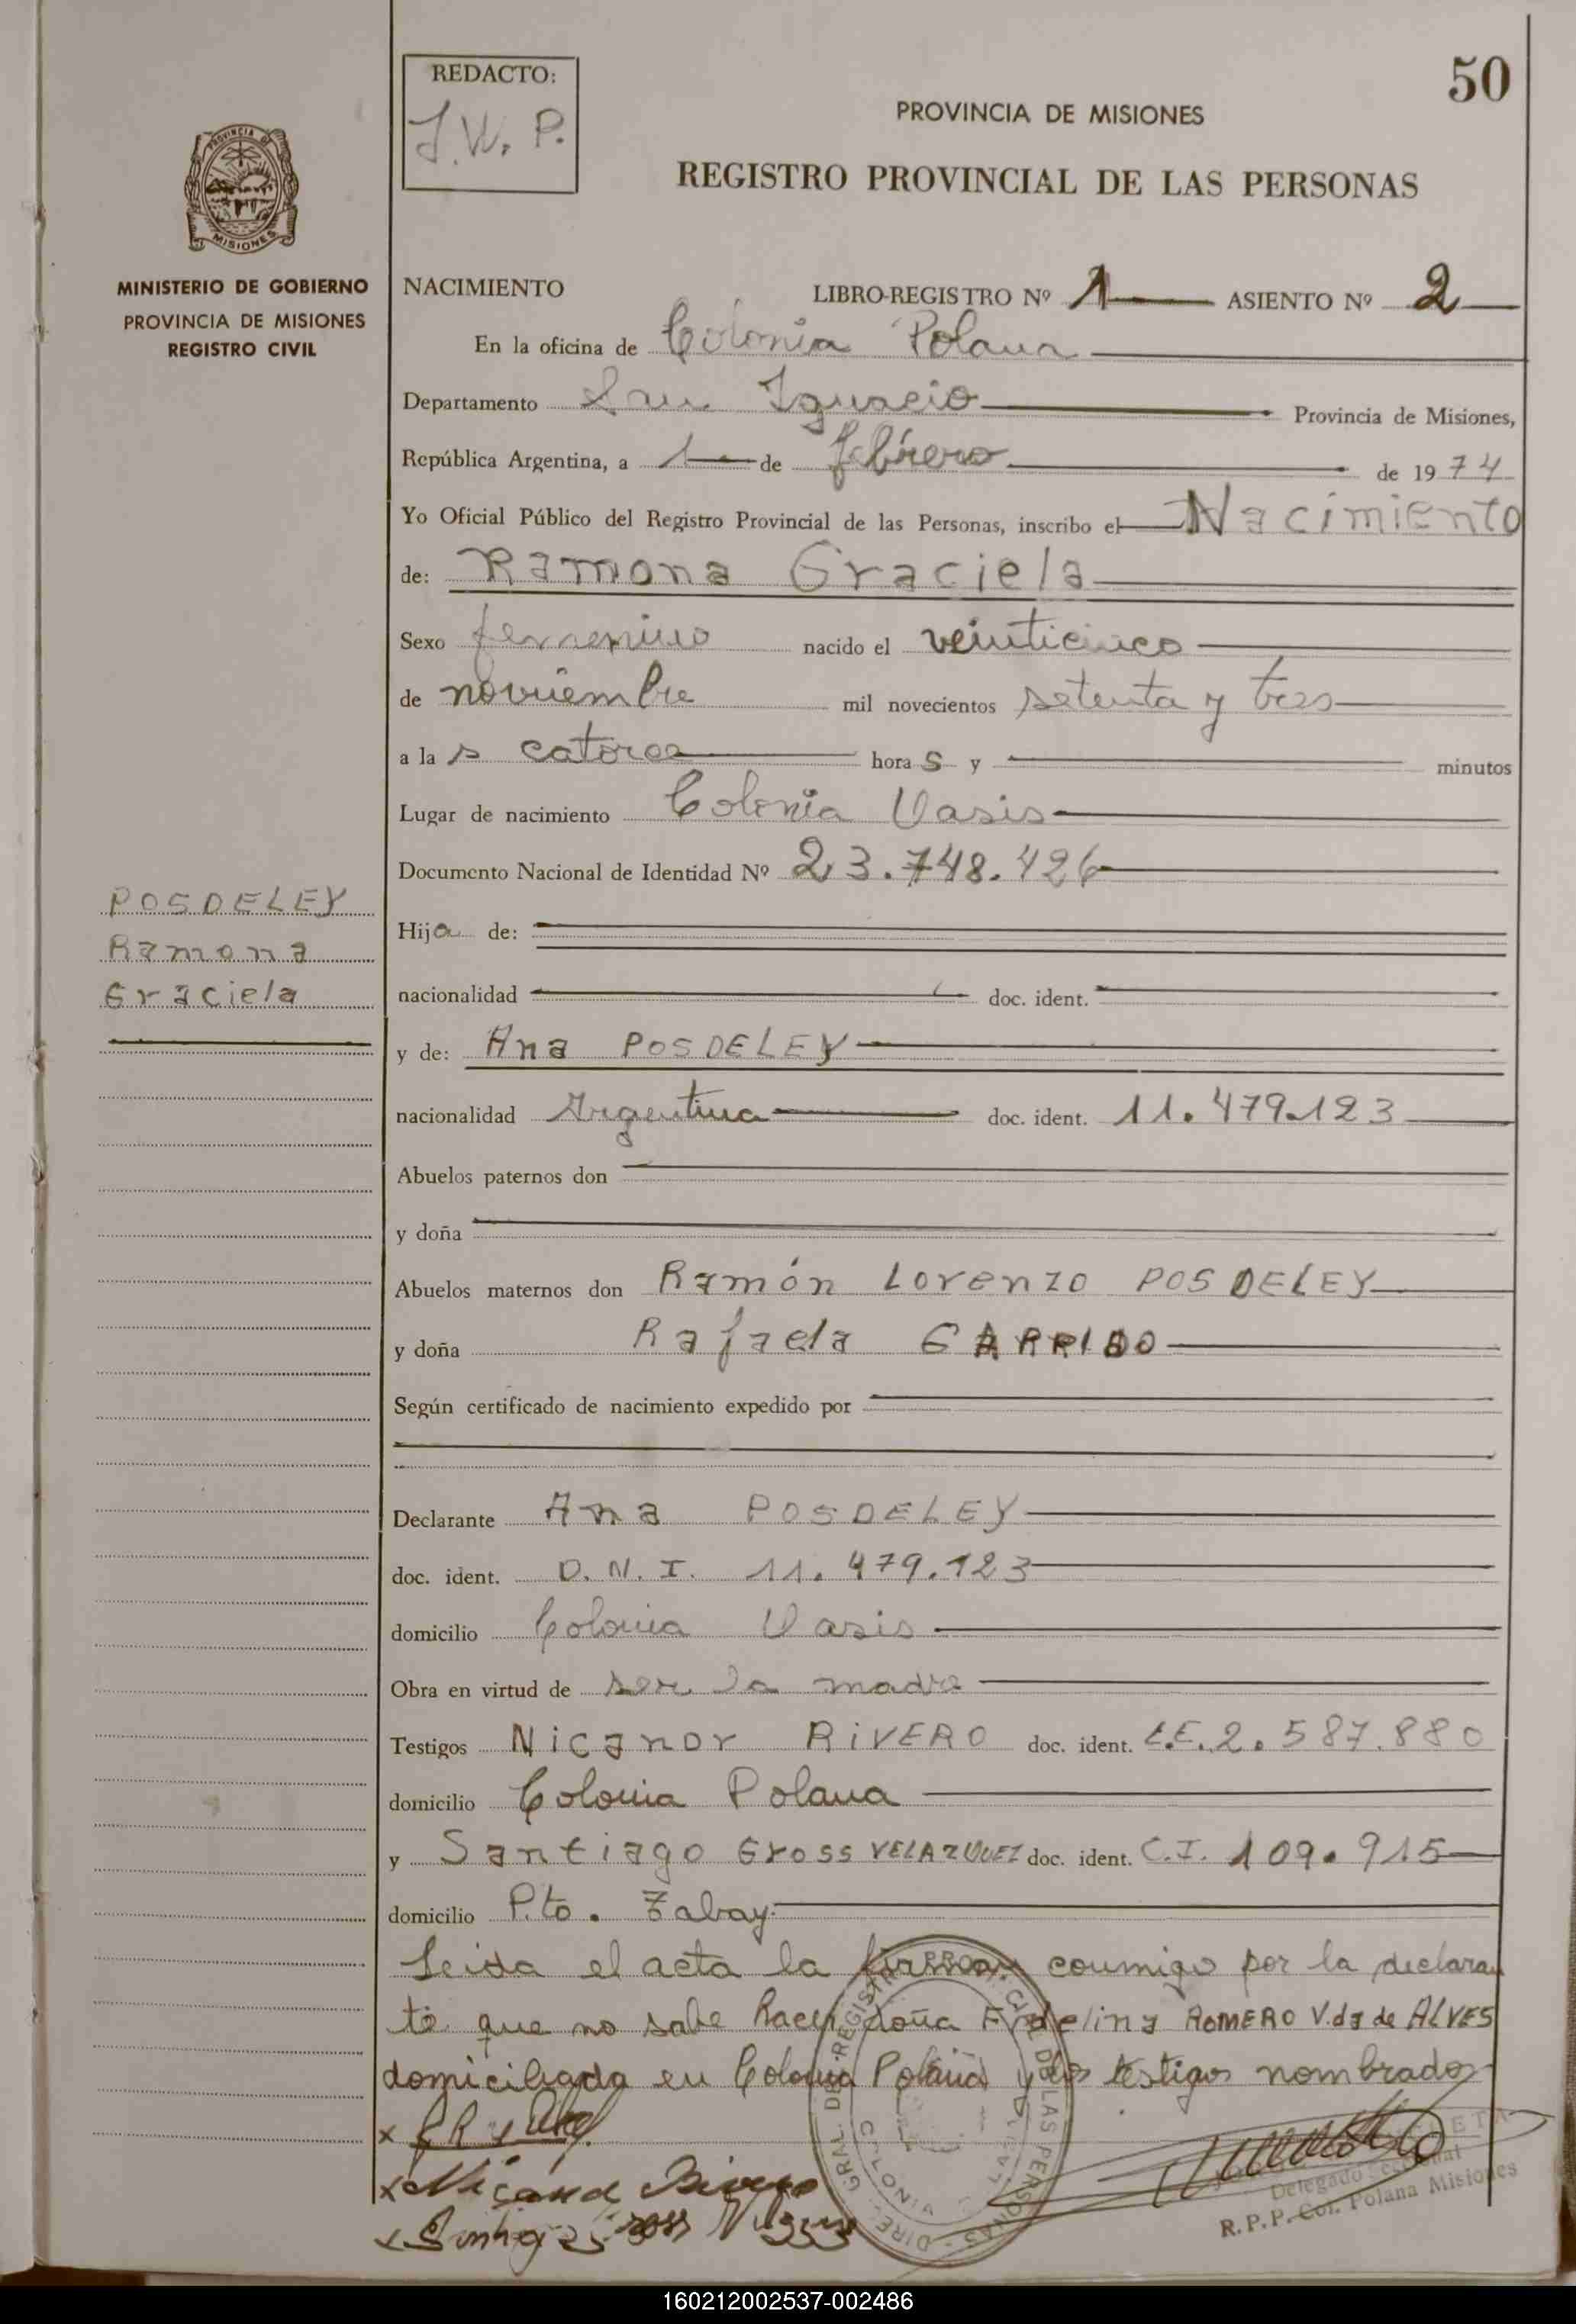 50
REDACTO:
J.W.P.
PROVINCIA DE MISIONES
REGISTRO PROVINCIAL DE LAS PERSONAS
PROVINCIA DE
MISIONES
MINISTERIO DE GOBIERNO
PROVINCIA DE MISIONES
REGISTRO CIVIL
NACIMIENTO LIBRO-REGISTRO Nº 1 ASIENTO Nº 2
En la oficina de Colonia Polana
Departamento San Ignacio Provincia de Misiones,
República Argentina, a 1 de febrero de 1974
Yo Oficial Público del Registro Provincial de las Personas, inscribo el Nacimiento
de: Ramona Graciela
Sexo femenino nacido el veinticinco
de noviembre mil novecientos setenta y tres
a la s catorce hora s y minutos
Lugar de nacimiento Colonia Oasis
Documento Nacional de Identidad Nº 23.748.426
POSDELEY
Ramona
Graciela
Hija de:
nacionalidad doc. ident.
y de: Ana POSDELEY
nacionalidad Argentina doc. ident. 11.479.123
Abuelos paternos don
y doña
Abuelos maternos don Ramón Lorenzo POSDELEY
y doña Rafaela GARRIDO
Según certificado de nacimiento expedido por
Declarante Ana POSDELEY
doc. ident. D.N.I. 11.479.123
domicilio Colonia Oasis
Obra en virtud de ser la madre
Testigos Nicanor RIVERO doc. ident. L.E. 2.587.880
domicilio Colonia Polana
y Santiago Gross VELAZQUEZ doc. ident. C.I. 109.915
domicilio Pto. Zabay.
Leida el acta la firman conmigo por la declaran
te que no sabe hacer doña Fidelina ROMERO V.da de ALVES
domiciliada en Colonia Polana y los testigos nombrados
Delegado Seccional
R.P.P. Col. Polana Misiones
160212002537-002486